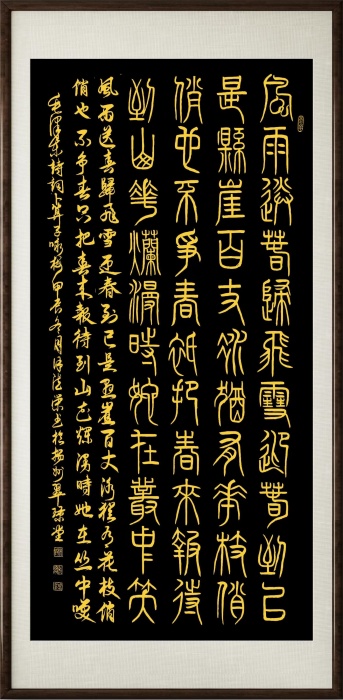 風雨送春歸飛雪迎春到已
是縣崖百丈冰猶有華枝俏
俏也不爭春祇把春來報待
到山華爛漫時她在叢中笑
風雨送春歸飛雪迎春到已是懸崖百丈冰猶有花枝俏
俏也不争春只把春来報待到山花爛漫時她在丛中笑
毛澤東詩詞卜算子咏梅甲辰冬月書於揚州翠